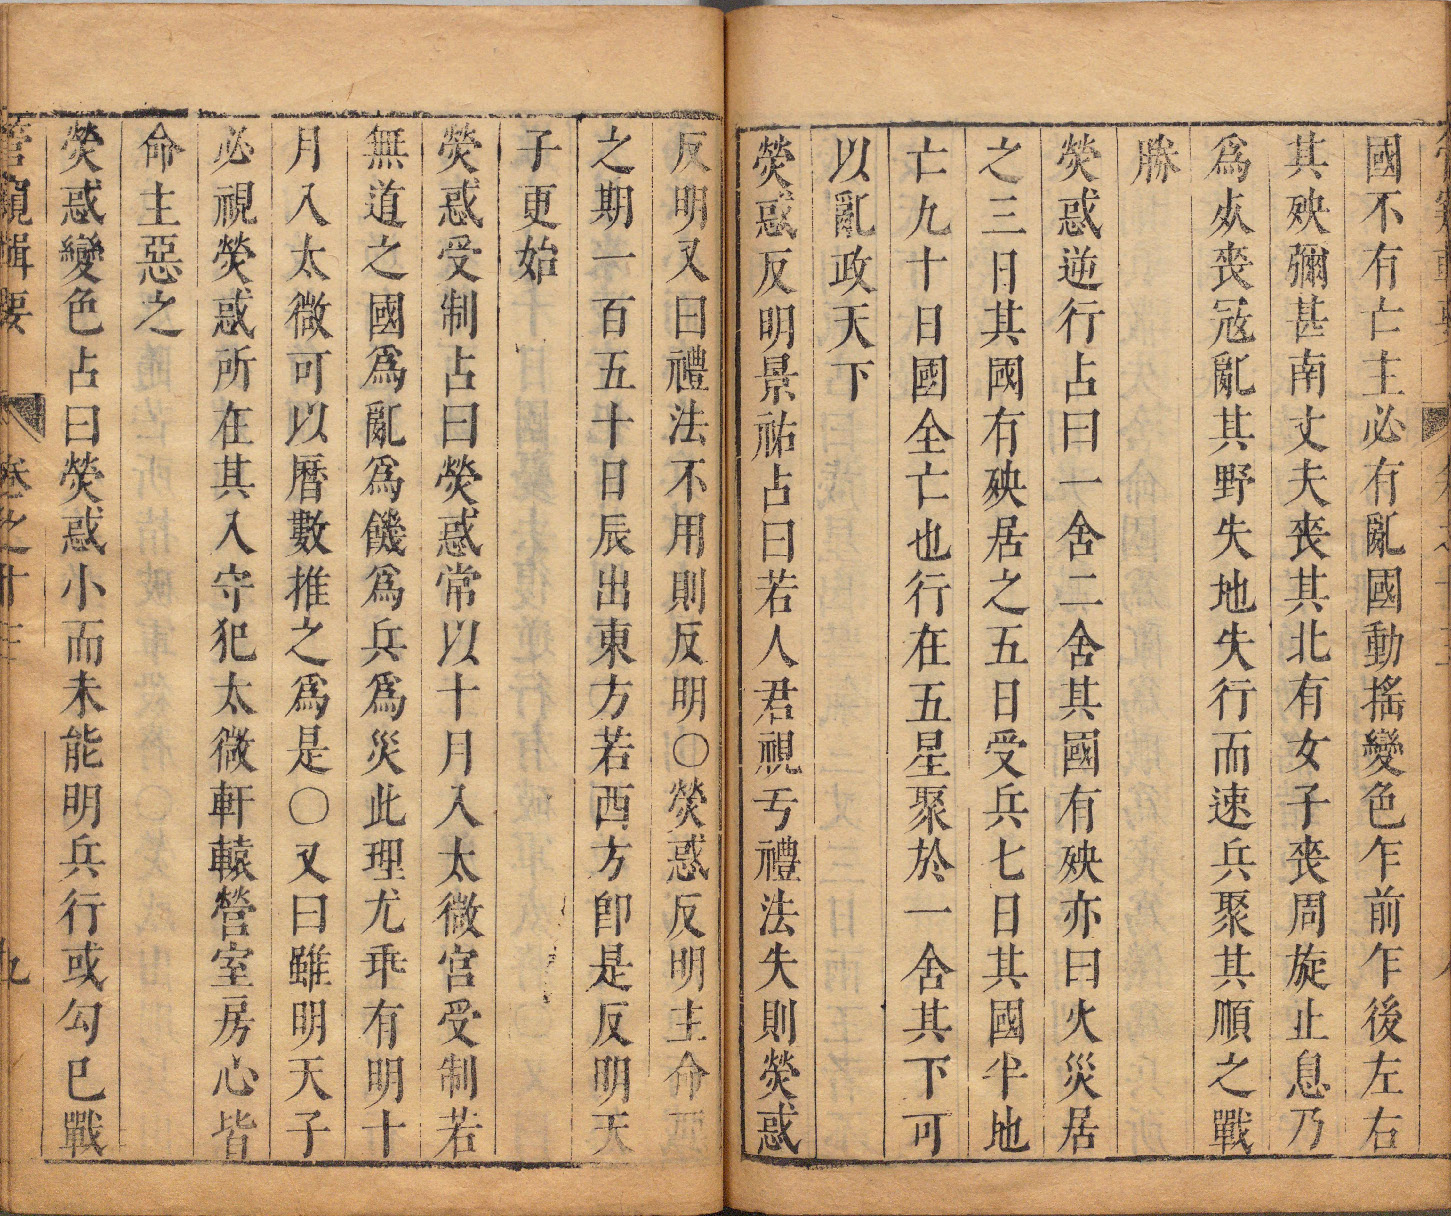 國不有亡主必有亂國動搖變色乍前乍後左右
其殃彌甚南丈夫喪其北有女子喪周旋止息乃
爲㱙喪冦亂其野失地失行而速兵聚其順之戰
勝
熒惑逆行占曰一舍二舍其國有殃亦曰火災居
之三日其國有殃居之五日受兵七日其國半地
亡九十日國全亡也行在五星聚於一舍其下可
以亂政天下
熒惑反明景祐占曰若人君視亏禮法失則熒惑
反明又曰禮法不用則反明〇熒惑反明主命惡
之期一百五十日辰出東方若西方卽是反明天
子更始
熒惑受制占曰熒惑常以十月入太微宮受制若
無道之國爲亂爲饑爲兵爲災此理尤乖有明十
月入太微可以曆數推之爲是〇又曰雖明天子
必視熒惑所在其入守犯太微軒轅營室房心皆
命主惡之
熒惑變色占曰熒惑小而未能明兵行或勾巳戰
管窺輯要 卷之十三 九